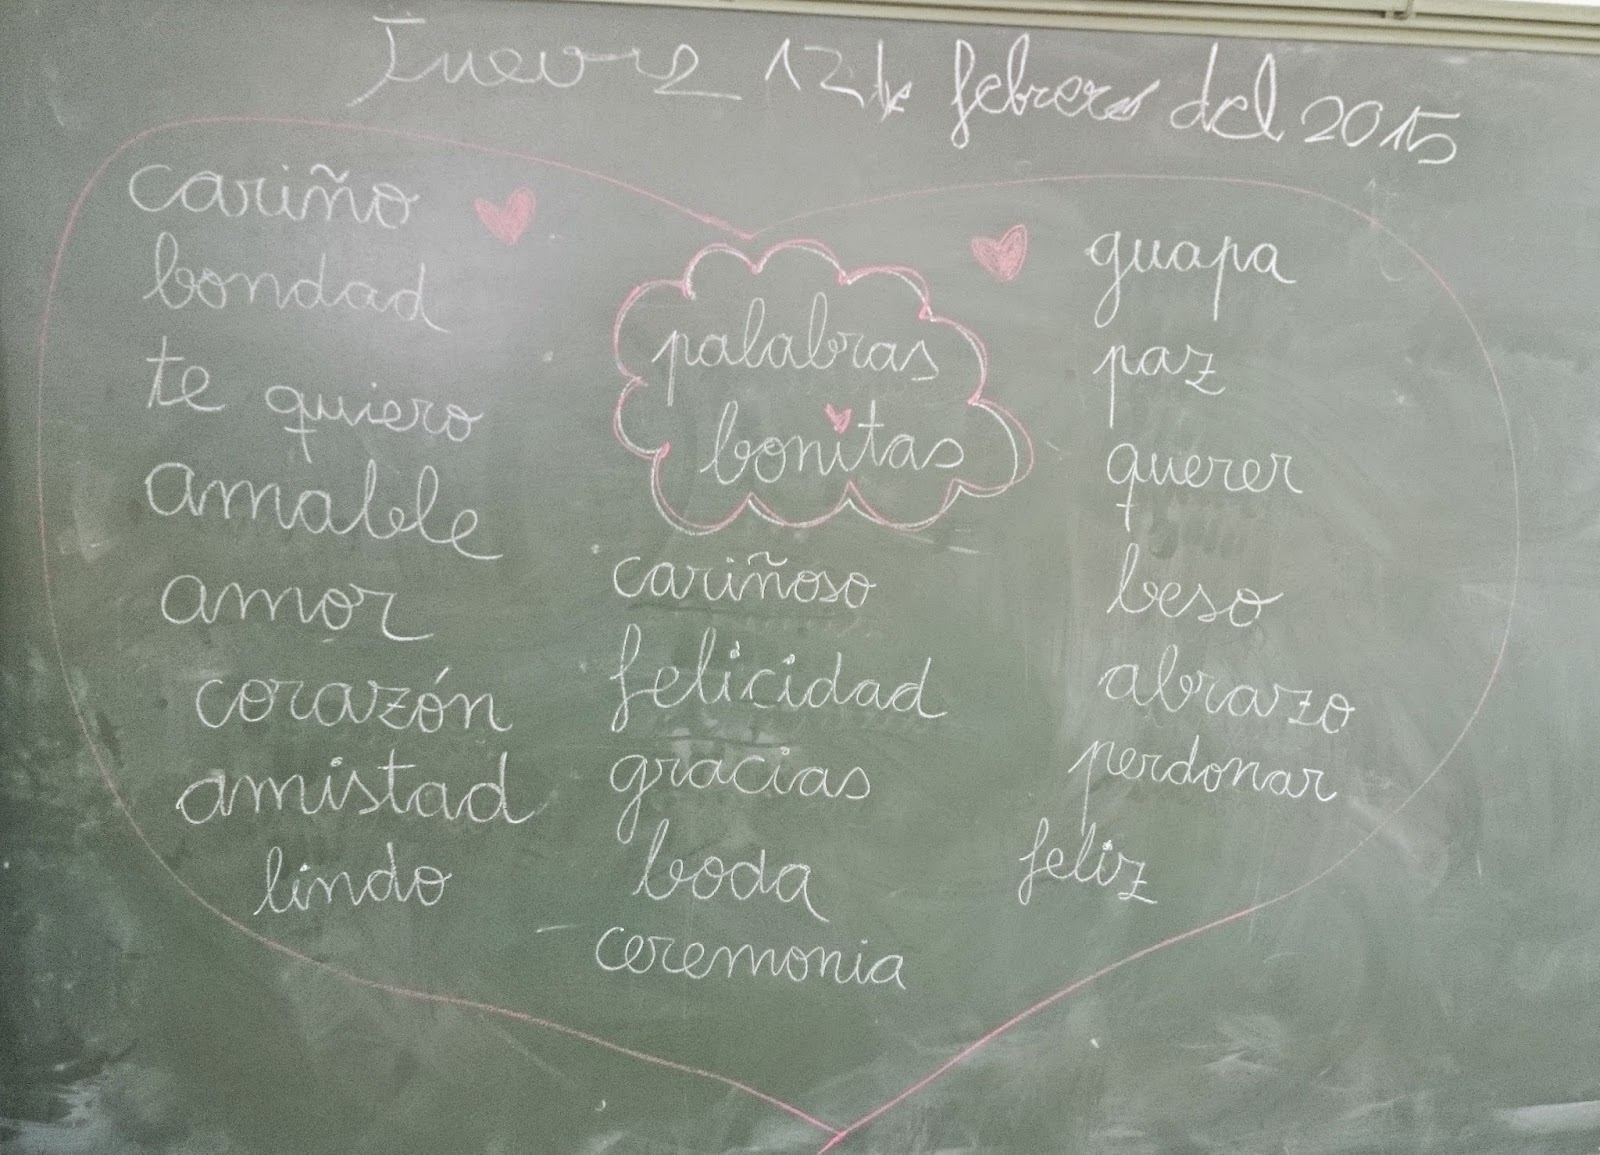 Jueves 12 de febrero del 2015
palabras
bonitas
cariño
bondad
te quiero
amable
amor
corazón
amistad
lindo
cariñoso
felicidad
gracias
boda
ceremonia
guapa
paz
querer
beso
abrazo
perdonar
feliz